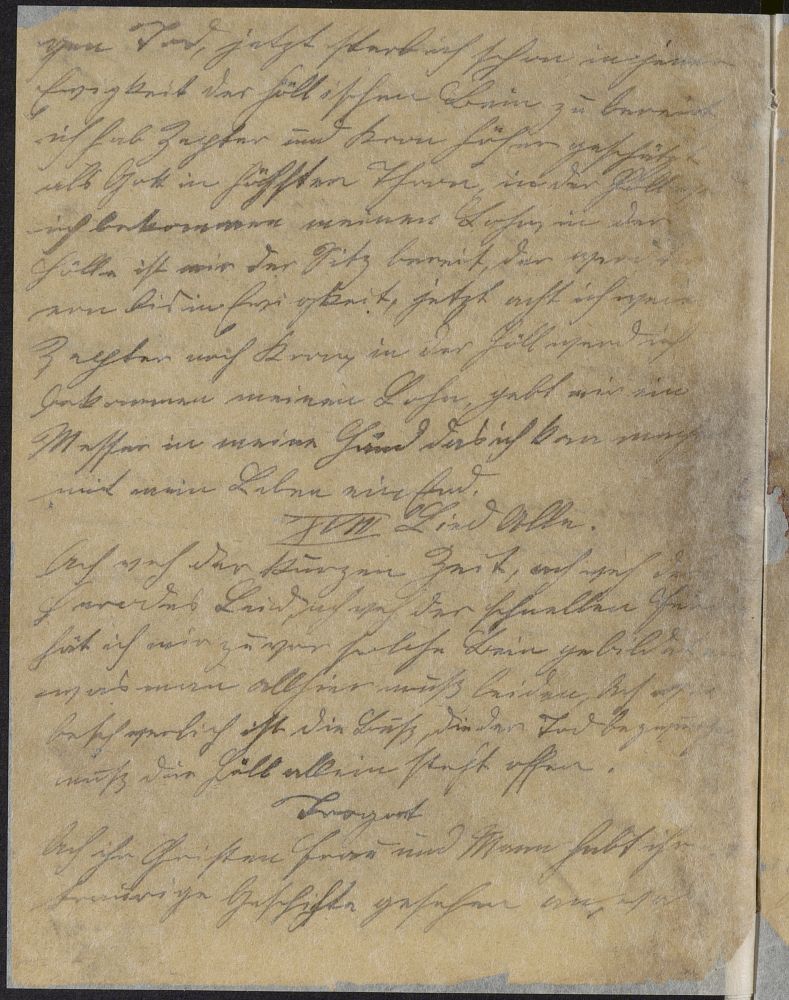 gen Tod, jetzt sterb ich schon in jene
Ewigkeit der höllischen Bein zu bereit
ich hab Zepter und Kron höher geschätzt
als Gott in höchsten Thron, in der Höll
ich bekommen meinen Lohn, in der
Hölle ist mir der Sitz bereit, der
ern bis in Ewigkeit, jetzt acht ich wede
Zepter noch Kron, in der Höll werd ich
bekommen meinen Lohn, gebt mir ein
Messer in meine Händ das ich kan mach
mit mein Leben ein End.
XVIII Lied Alle.
Ach weh der kurzen Zeit, ach weh de
Herodes Leid, ach weh der schnellen
hät ich mir zuvor solche Bein gebilde
was man allhier muß leiden, Ach
beschwerlich ist die Buß, die der Tod
muß die Höll allein steht offen.

Ach ihr Christen Frau und Mann habt ihr
traurige Geschichte gesehen an,